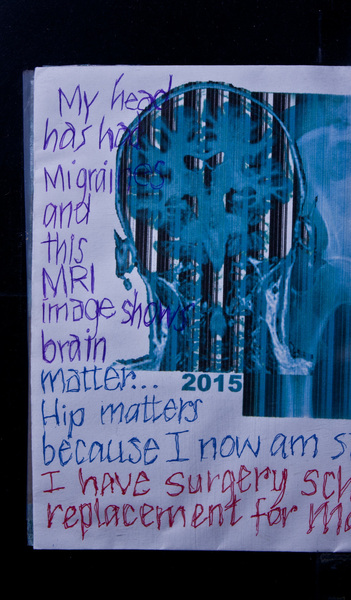 My head
has had
Migraines
and
this
MRI
image shows
brain
matter... 2015
Hip matters
because I now am
I have surgery
replacement for